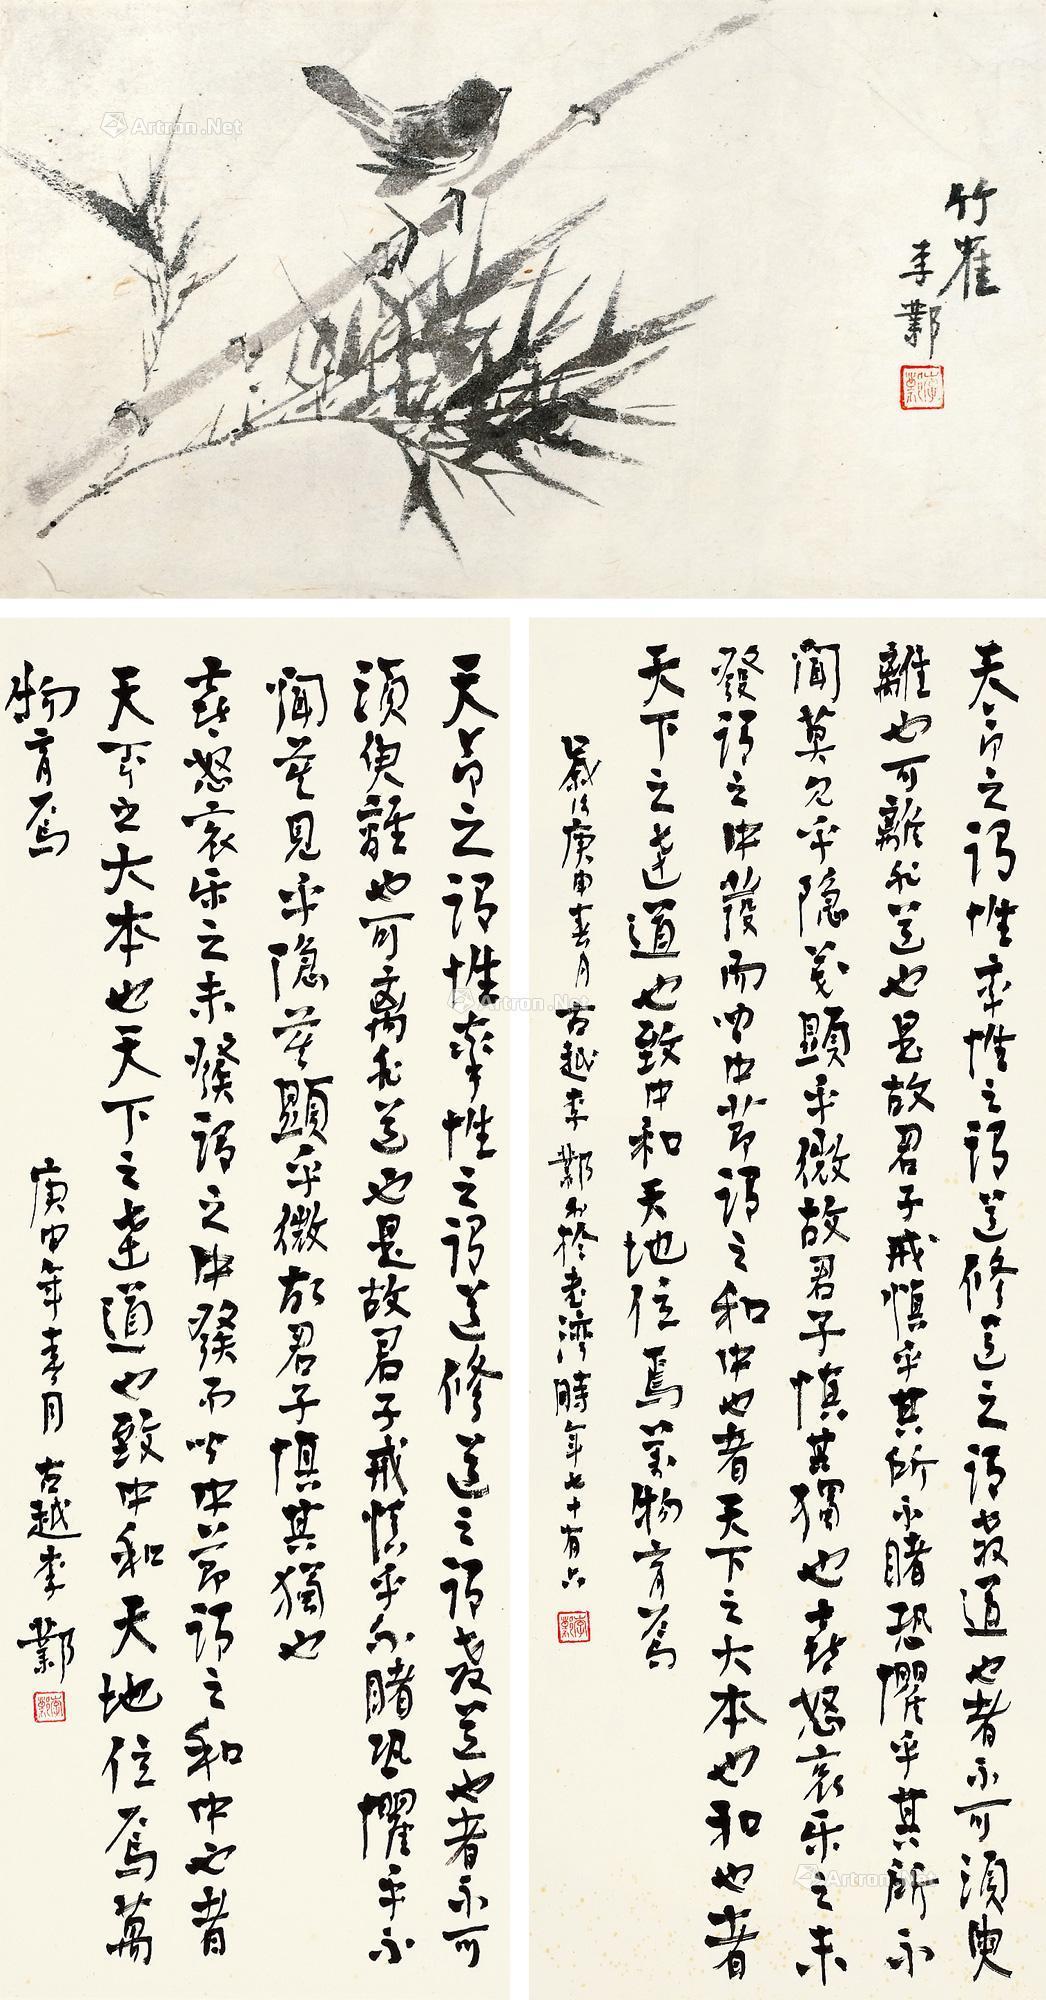 竹雀
李鄴
李鄴
天命之謂性率性之謂道修道之謂教道也者不可須臾
離也可離非道也是故君子戒慎乎其所不睹恐懼乎其所不
聞莫見乎隐莫顯乎微故君子慎其獨也喜怒哀乐之未
發謂之中發而皆中節謂之和中也者天下之大本也和也者
天下之達道也致中和天地位焉萬物育焉
歲次庚申春月古越李鄴於老灣時年七十有六
李鄴
天命之謂性率性之謂道修道之謂教道也者不可
須臾離也可离非道也是故君子戒慎乎不睹恐懼乎不
聞莫見乎隐莫顯乎微故君子慎其獨也
喜怒哀乐之未發謂之中發而皆中節謂之和中也者
天下之大本也天下之達道也致中和天地位焉萬
物育焉
庚申年春月古越李鄴
李鄴
Artron.Net
Artron.Net
Artron.Net
Artron.Net